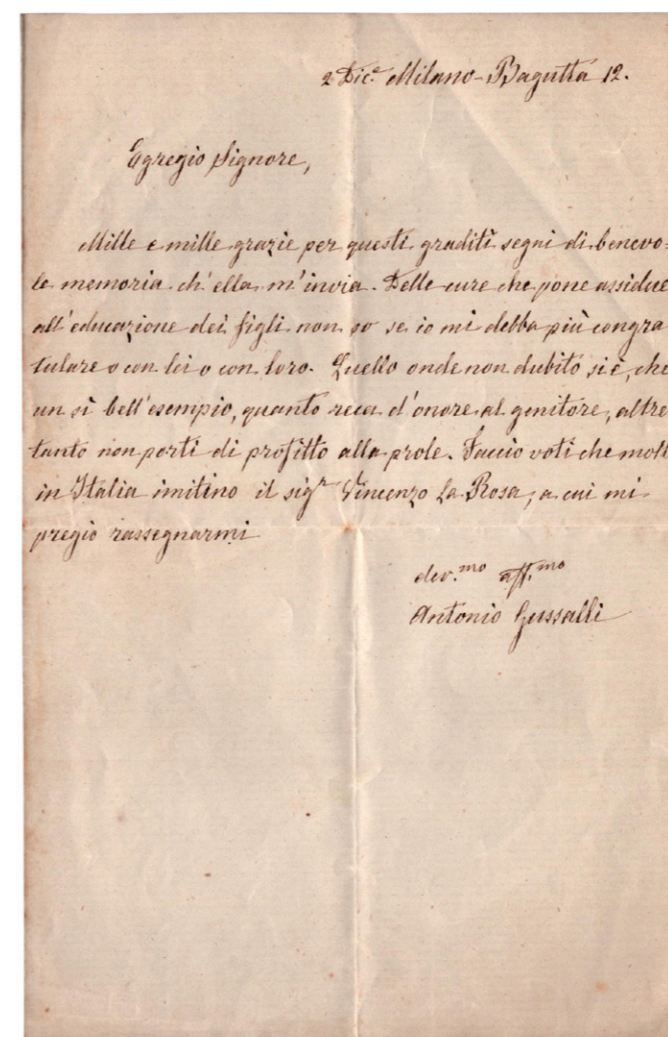 2 Dic.e Milano - Bagutta 12.
Egregio Signore,
Mille e mille grazie per questi graditi segni di benevo=
le memoria ch'ella m'invia. Delle cure che pone assidue
all'educazione dei figli non so se io mi debba più congra
tulare o con lei o con loro. Quello onde non dubito si è, che
un sì bell'esempio, quanto reca d'onore al genitore, altre
tanto non porti di profitto alla prole. Faccio voti che molti
in Italia imitino il sigr Vincenzo La Rosa, a cui mi
pregio rassegnarmi
dev.mo aff.mo
Antonio Gussalli